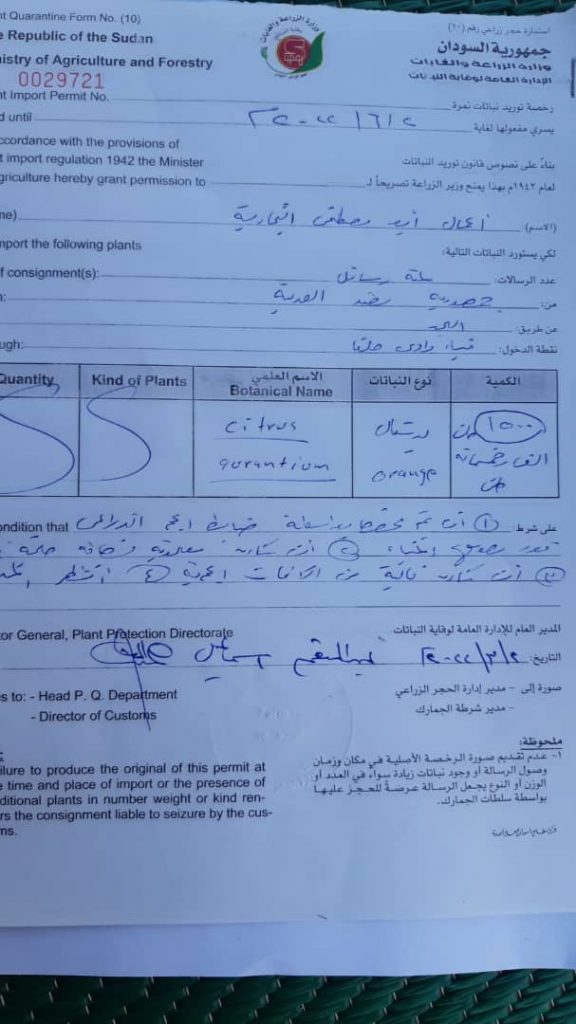 nt Quarantine Form No. (10)
استمارة حجر زراعي رقم (١٠)
e Republic of the Sudan
جمهورية السودان
nistry of Agriculture and Forestry
وزارة الزراعة والغابات
0029721
الإدارة العامة لوقاية النباتات
nt Import Permit No.
رخصة توريد نباتات نمرة
d until ٢٠٢٢/٦/٢ يسري مفعولها لغاية
ccordance with the provisions of
بناءً على نصوص قانون توريد النباتات
t import regulation 1942 the Minister
griculture hereby grant permission to
لعام ١٩٤٢م بهذا يمنح وزير الزراعة تصريحاً لـ
me) (الاسم) أعمال أبو مصطفى التجارية
mport the following plants
لكي يستورد النباتات التالية:
of consignment(s): عدد الرسالات: ستة رسائل
m: من: جمهورية مصر العربية
عن طريق: البحر
ough: نقطة الدخول: ميناء وادي حلفا
Quantity Kind of Plants الاسم العلمي نوع النباتات الكمية
Botanical Name
citrus برتقال ١٥٠٠ طن
aurantium orange الف وخمسمائة
طن
ondition that على شرط: ① أن تتم
② أن تكون
③ أن تكون خالية من الآفات
tor General, Plant Protection Directorate
المدير العام للإدارة العامة لوقاية النباتات
التاريخ: ٢٠٢٢/٣/٢
es to: - Head P. Q. Department
صورة إلى - مدير إدارة الحجر الزراعي
- Director of Customs
- مدير شرطة الجمارك
ملحوظة:
١- عدم تقديم صورة الرخصة الأصلية في مكان وزمان
وصول الرسالة أو وجود نباتات زيادة سواء في العدد أو
الوزن أو النوع يجعل الرسالة عرضة للحجز عليها
بواسطة سلطات الجمارك.
ailure to produce the original of this permit at
e time and place of import or the presence of
ditional plants in number weight or kind ren-
ers the consignment liable to seizure by the cus-
ms.